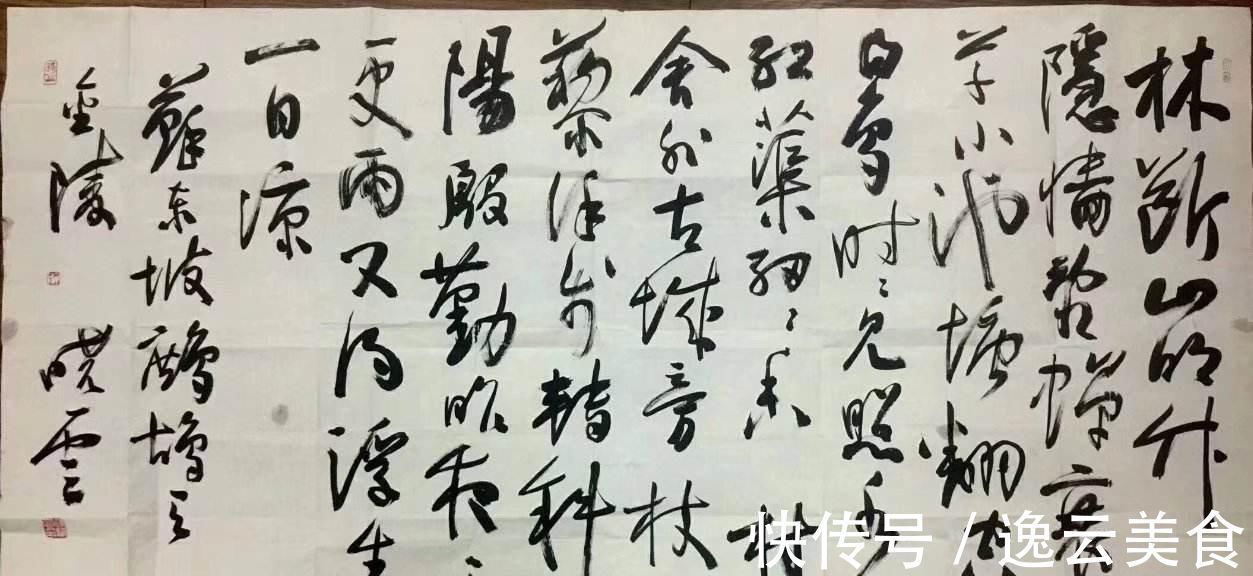 林断山明竹
隱墙乱蝉衰
草小池塘翻空
白鸟时〻见照水
红蕖细〻香村
舍外古城旁杖
藜徐步转斜
陽殷勤昨夜三
更雨又得浮生
一日凉
蘇东坡鹧鸪天
金陵 晓雲
快传号 / 逸云美食